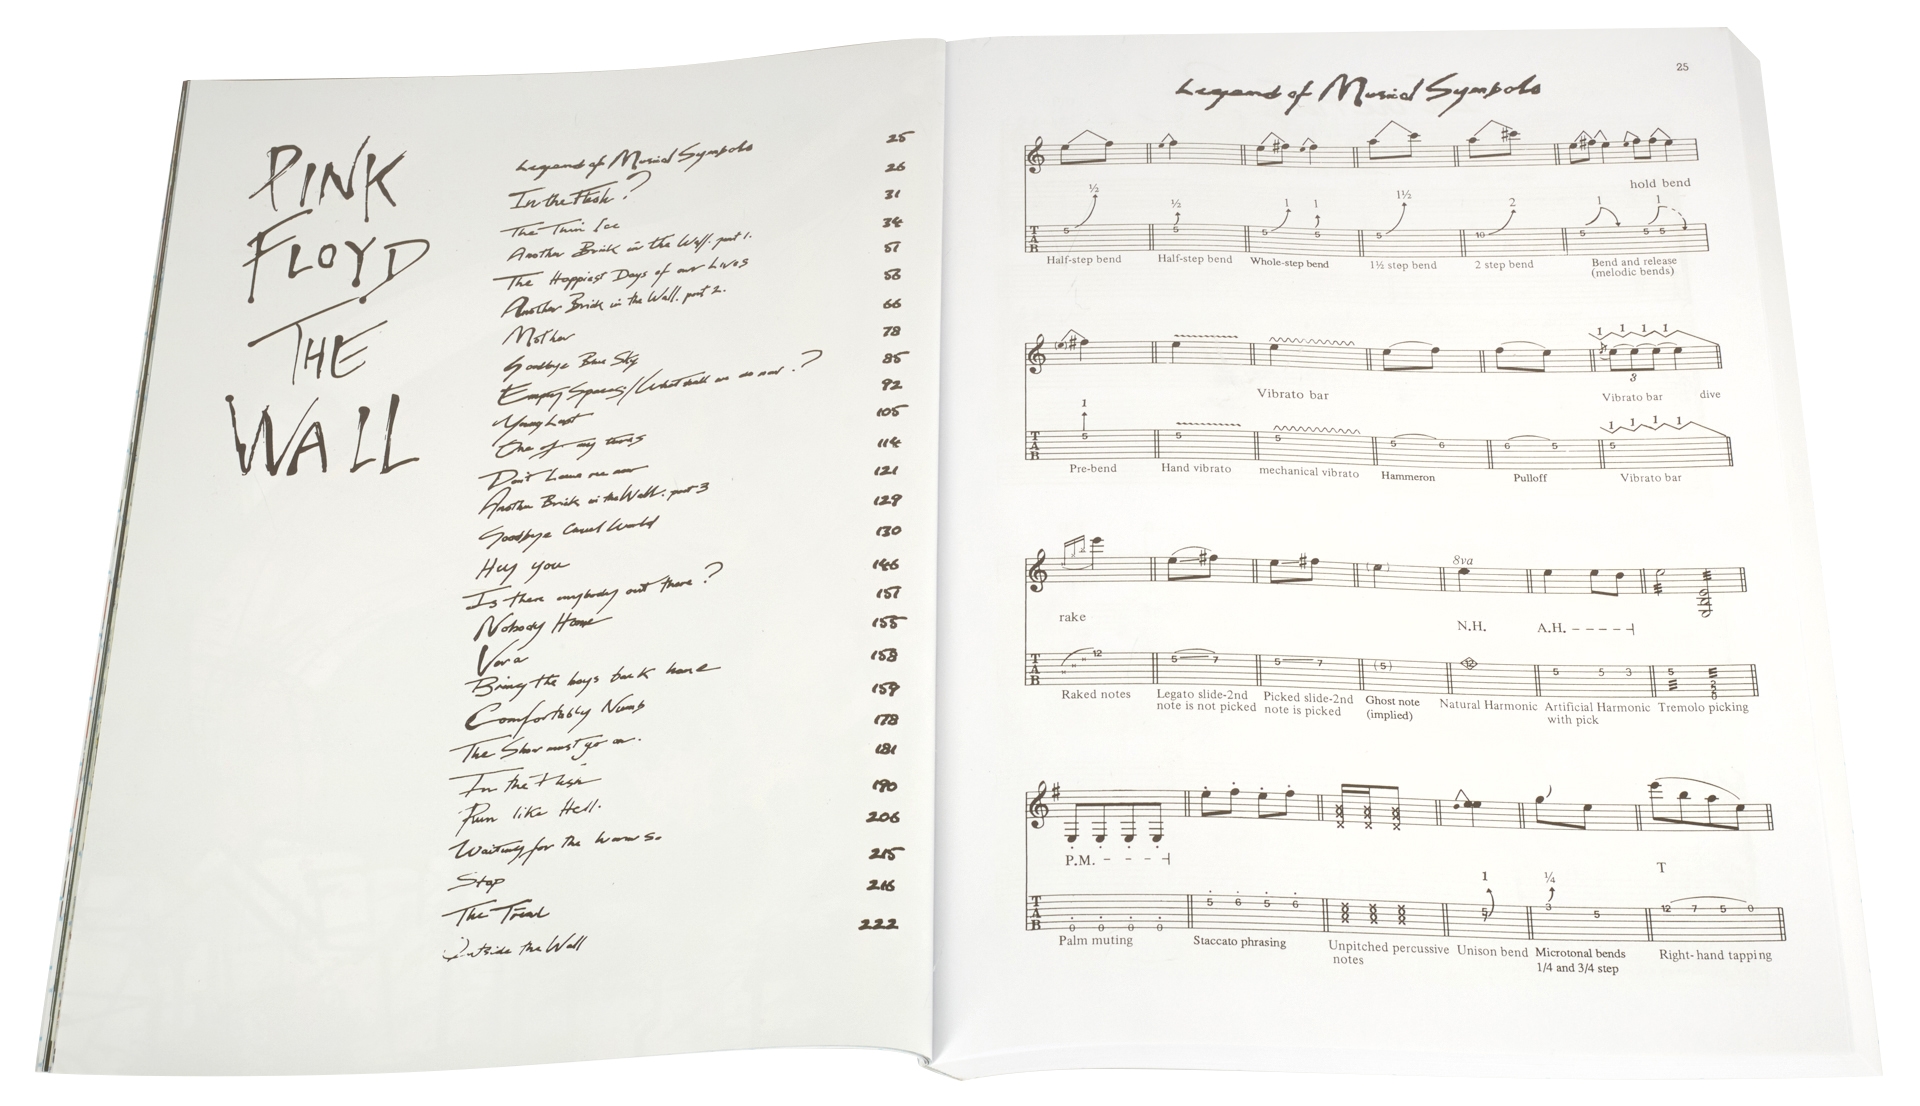 PINK
FLOYD
THE
WALL
Legend of Musical Symbols 25
In the Flesh? 26
The Thin Ice 31
Another Brick in the Wall. part 1. 34
The Happiest Days of our Lives 51
Another Brick in the Wall. part 2. 53
Mother 66
Goodbye Blue Sky 78
Empty Spaces/What shall we do now.? 85
Young Lust 92
One of my turns 105
Don't Leave me now 114
Another Brick in the Wall. part 3 121
Goodbye Cruel World 129
Hey you 130
Is there anybody out there? 146
Nobody Home 151
Vera 155
Bring the boys back home 158
Comfortably Numb 159
The Show must go on. 178
In the Flesh 181
Run like Hell. 190
Waiting for the worms. 206
Stop 215
The Trial 216
Outside the Wall 222
25
Legend of Musical Symbols
hold bend
½ ½ 1 1 1½ 2 1 1
T A B 5 5 5 5 5 10 5 5 5
Half-step bend Half-step bend Whole-step bend 1½ step bend 2 step bend Bend and release
(melodic bends)
1 1 1 1
3
Vibrato bar Vibrato bar dive
1 1 1 1 1
T A B 5 5 5 5 6 6 5 5
Pre-bend Hand vibrato mechanical vibrato Hammeron Pulloff Vibrato bar
8va
rake N.H. A.H.
T A B 12 5 7 5 7 (5) 12 5 5 3 5 2 2 0
Raked notes Legato slide-2nd note is not picked Picked slide-2nd note is picked Ghost note (implied) Natural Harmonic Artificial Harmonic with pick Tremolo picking
P.M. T
1 ¼
T A B 0 0 0 0 5 6 5 6 5 3 5 12 7 5 0
Palm muting Staccato phrasing Unpitched percussive notes Unison bend Microtonal bends 1/4 and 3/4 step Right-hand tapping